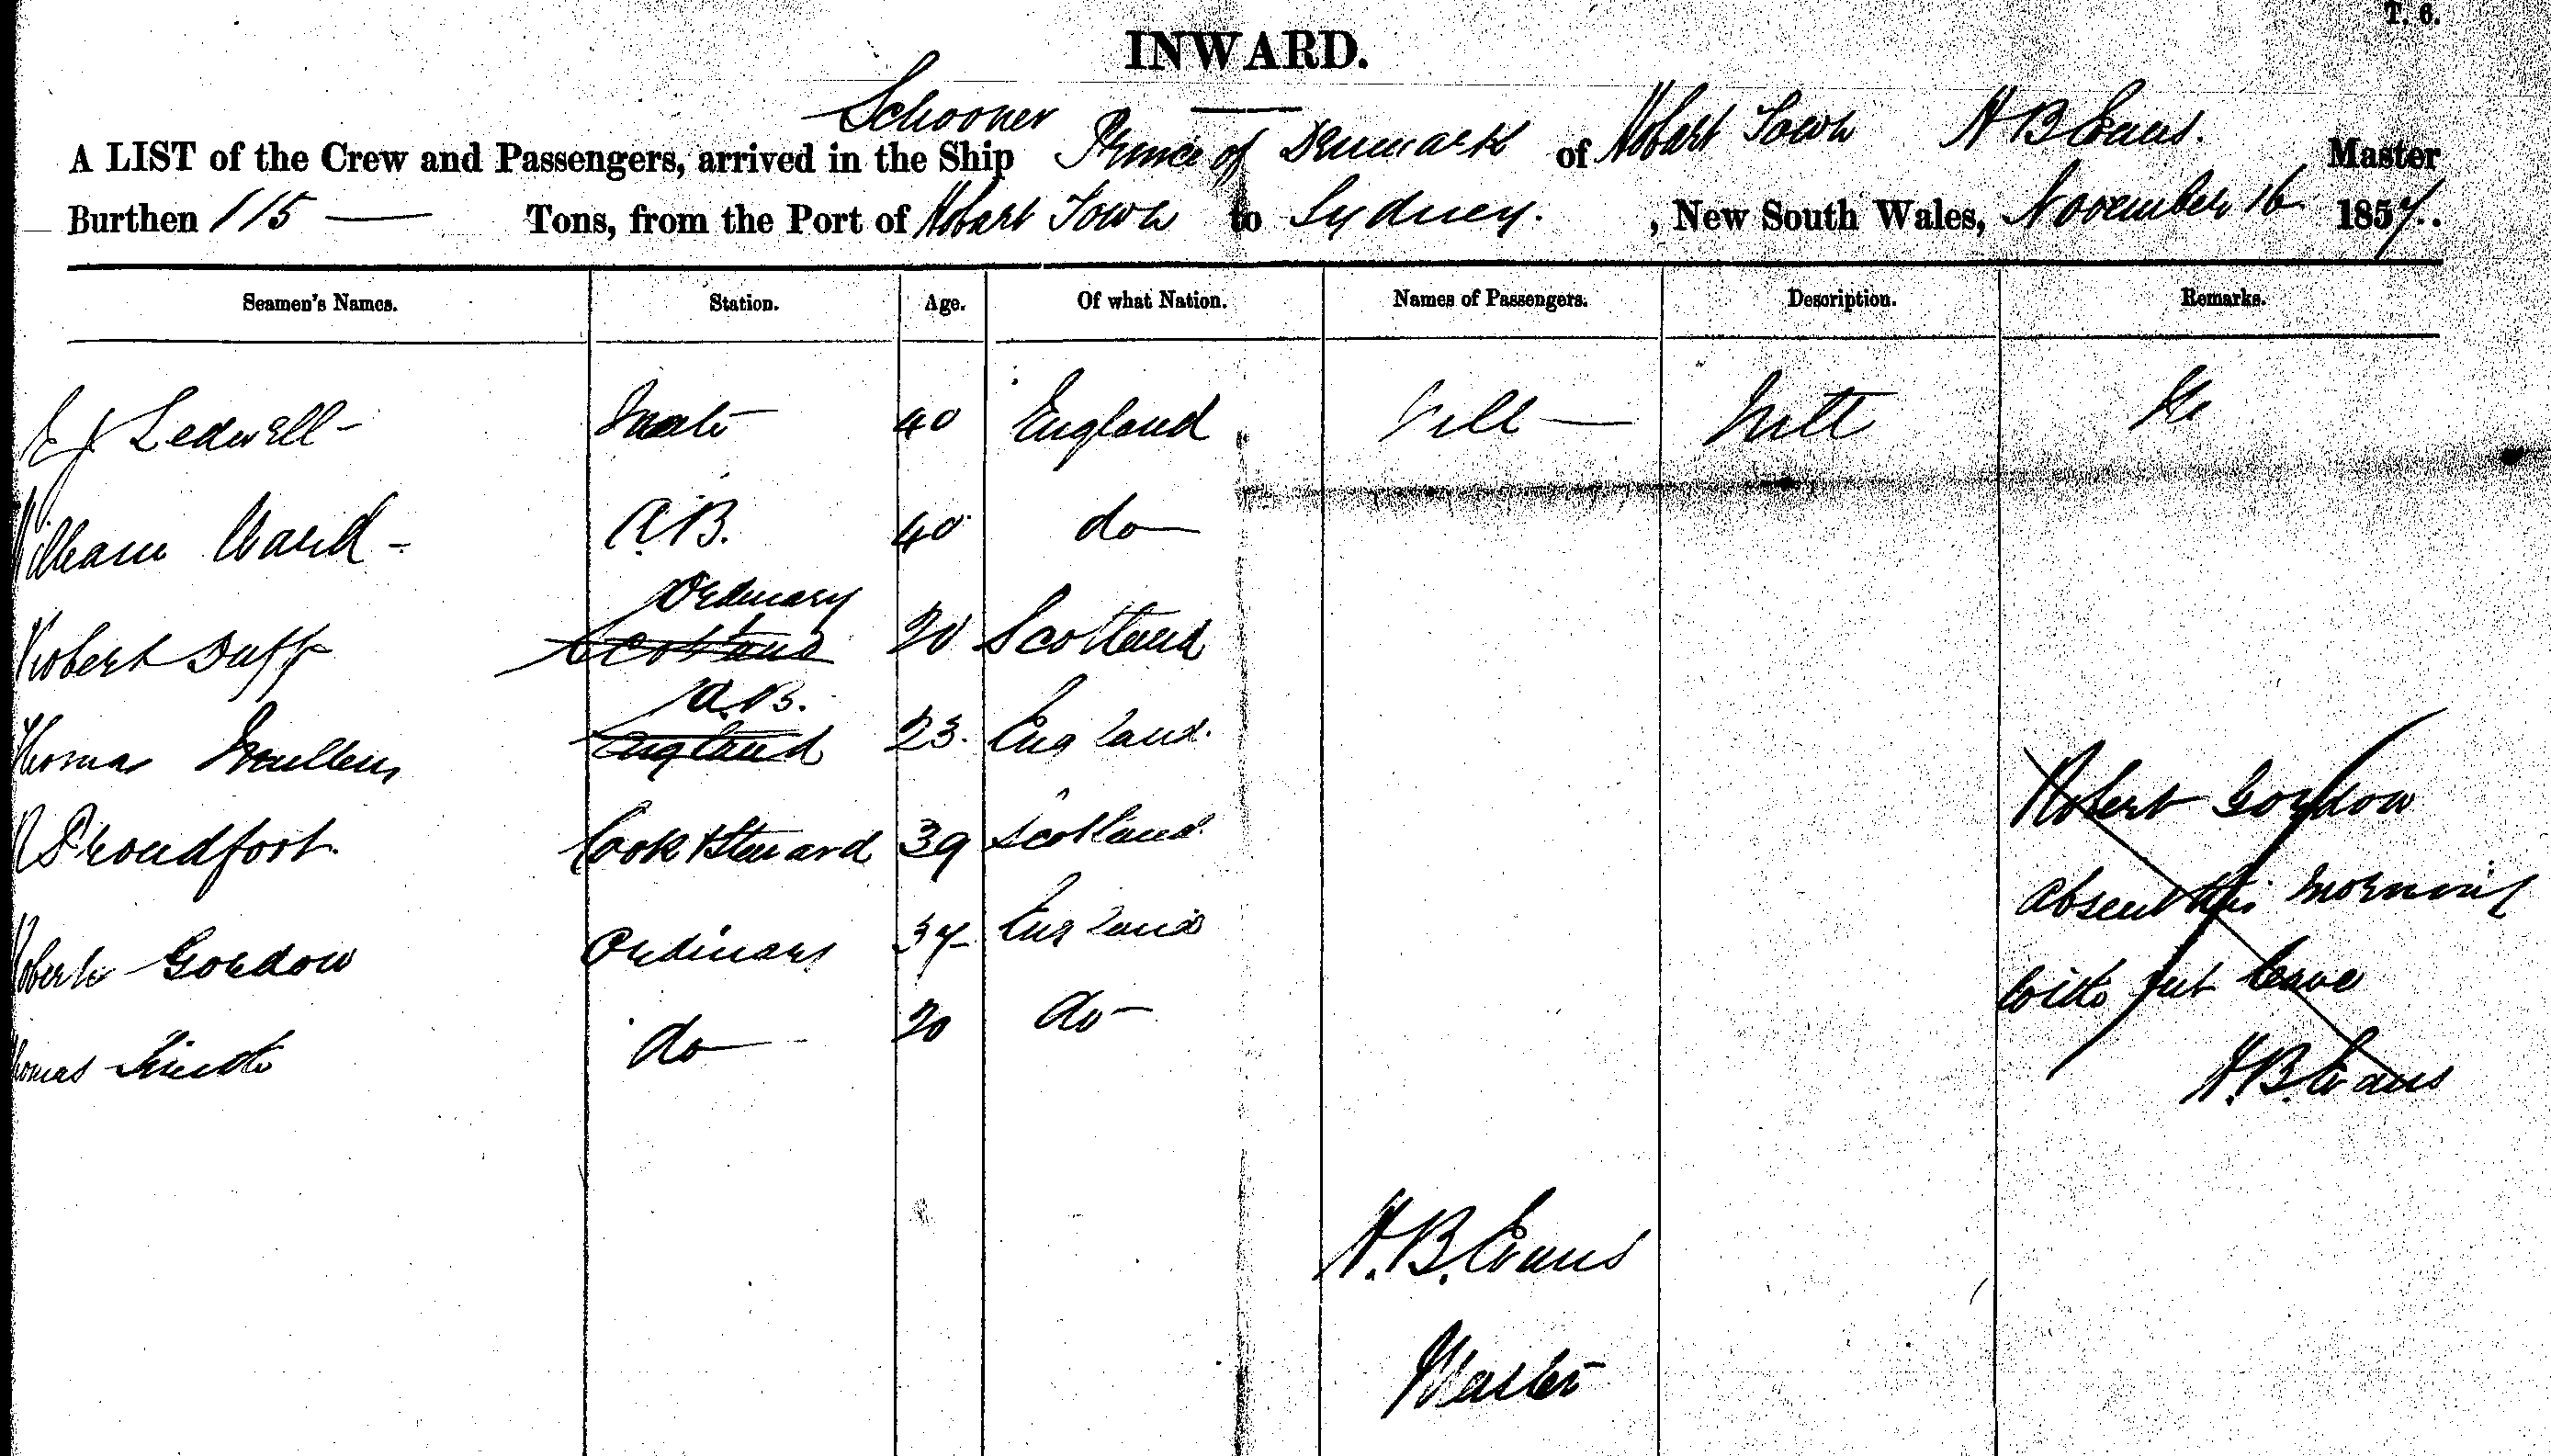 T. 6.
INWARD.
Schooner
A LIST of the Crew and Passengers, arrived in the Ship Prince of Denmark of Hobart Town H B Evans. Master
Burthen 115 — Tons, from the Port of Hobart Town to Sydney. , New South Wales, November 16 1857.
Seamen's Names. Station. Age. Of what Nation. Names of Passengers. Description. Remarks.
E J Ledwell - Mate 40 England Nill — Nill
William Ward - A.B. 40 do
Ordinary
Robert Duff Scotland 20 Scotland
A.B.
Thomas Mullens England 23. England.
Proudfoot. Cook & Steward 39 Scotland
Robert Gordon Ordinary 37 England
Thomas do 20 do
Robert Gordon
absent this morning
without leave
H.B. Evans
H.B. Evans
Master